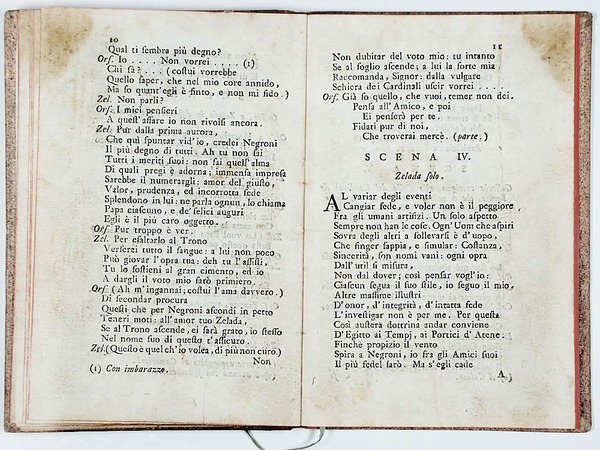 10
Qual ti sembra più degno?
Ors. Io . . . . Non vorrei . . . . (1)
Chi sà? . . . (costui vorrebbe
Quello saper, che nel mio core annido,
Ma so quant'egli è finto, e non mi fido.)
Zel. Non parli?
Ors. I miei pensieri
A quest'affare io non rivolsi ancora.
Zel. Pur dalla prima aurora,
Che quì spuntar vid'io, credei Negroni
Il più degno di tutti. Ah tu non sai
Tutti i meriti suoi: non sai quell'alma
Di quali pregi è adorna; immensa impresa
Sarebbe il numerargli: amor del giusto,
Valor, prudenza, ed incorrotta fede
Splendono in lui: ne parla ognun, lo chiama
Papa ciascuno, e de' felici auguri
Egli è il più caro oggetto.
Ors. Pur troppo è ver.
Zel. Per esaltarlo al Trono
Verserei tutto il sangue: a lui non poco
Può giovar l'opra tua: deh tu l'assisti.
Tu lo sostieni al gran cimento, ed io
A dargli il voto mio sarò primiero.
Ors. (Ah m'ingannai; costui l'ama davvero.)
Di secondar procura
Questi che per Negroni ascondi in petto
Teneri moti: all'amor tuo Zelada,
Se al Trono ascende, ei sarà grato, io stesso
Nel nome suo di questo t'assicuro.
Zel. (Questo è quel ch'io volea, di più non curo.)
Non
(1) Con imbarazzo.
11
Non dubitar del voto mio: tu intanto
Se al soglio ascende; a lui la sorte mia
Raccomanda, Signor: dalla vulgare
Schiera dei Cardinali uscir vorrei . . . .
Ors. Già so quello, che vuoi, temer non dei.
Pensa all' Amico, e poi
Ei penserà per te.
Fidati pur di noi,
Che troverai mercè. (parte.)
SCENA IV.
Zelada solo.
AL variar degli eventi
Cangiar fede, e voler non è il peggiore
Fra gli umani artifizi. Un solo aspetto
Sempre non han le cose. Ogn'Uom che aspiri
Sovra degli altri a sollevarsi è d'uopo,
Che finger sappia, e simular: Costanza,
Sincerità, son nomi vani: ogni opra
Dall'util si misura,
Non dal dover; così pensar vogl'io:
Ciascun segua il suo stile, io seguo il mio.
Altre massime illustri
D'onor, d'integrità, d'intatta fede
L'investigar non è per me. Per questa
Così austera dottrina andar conviene
D'Egitto ai Tempj, ai Portici d'Atene.
Finchè propizio il vento
Spira a Negroni, io fra gli Amici suoi
Il più fedel sarò. Ma s'egli cade
A